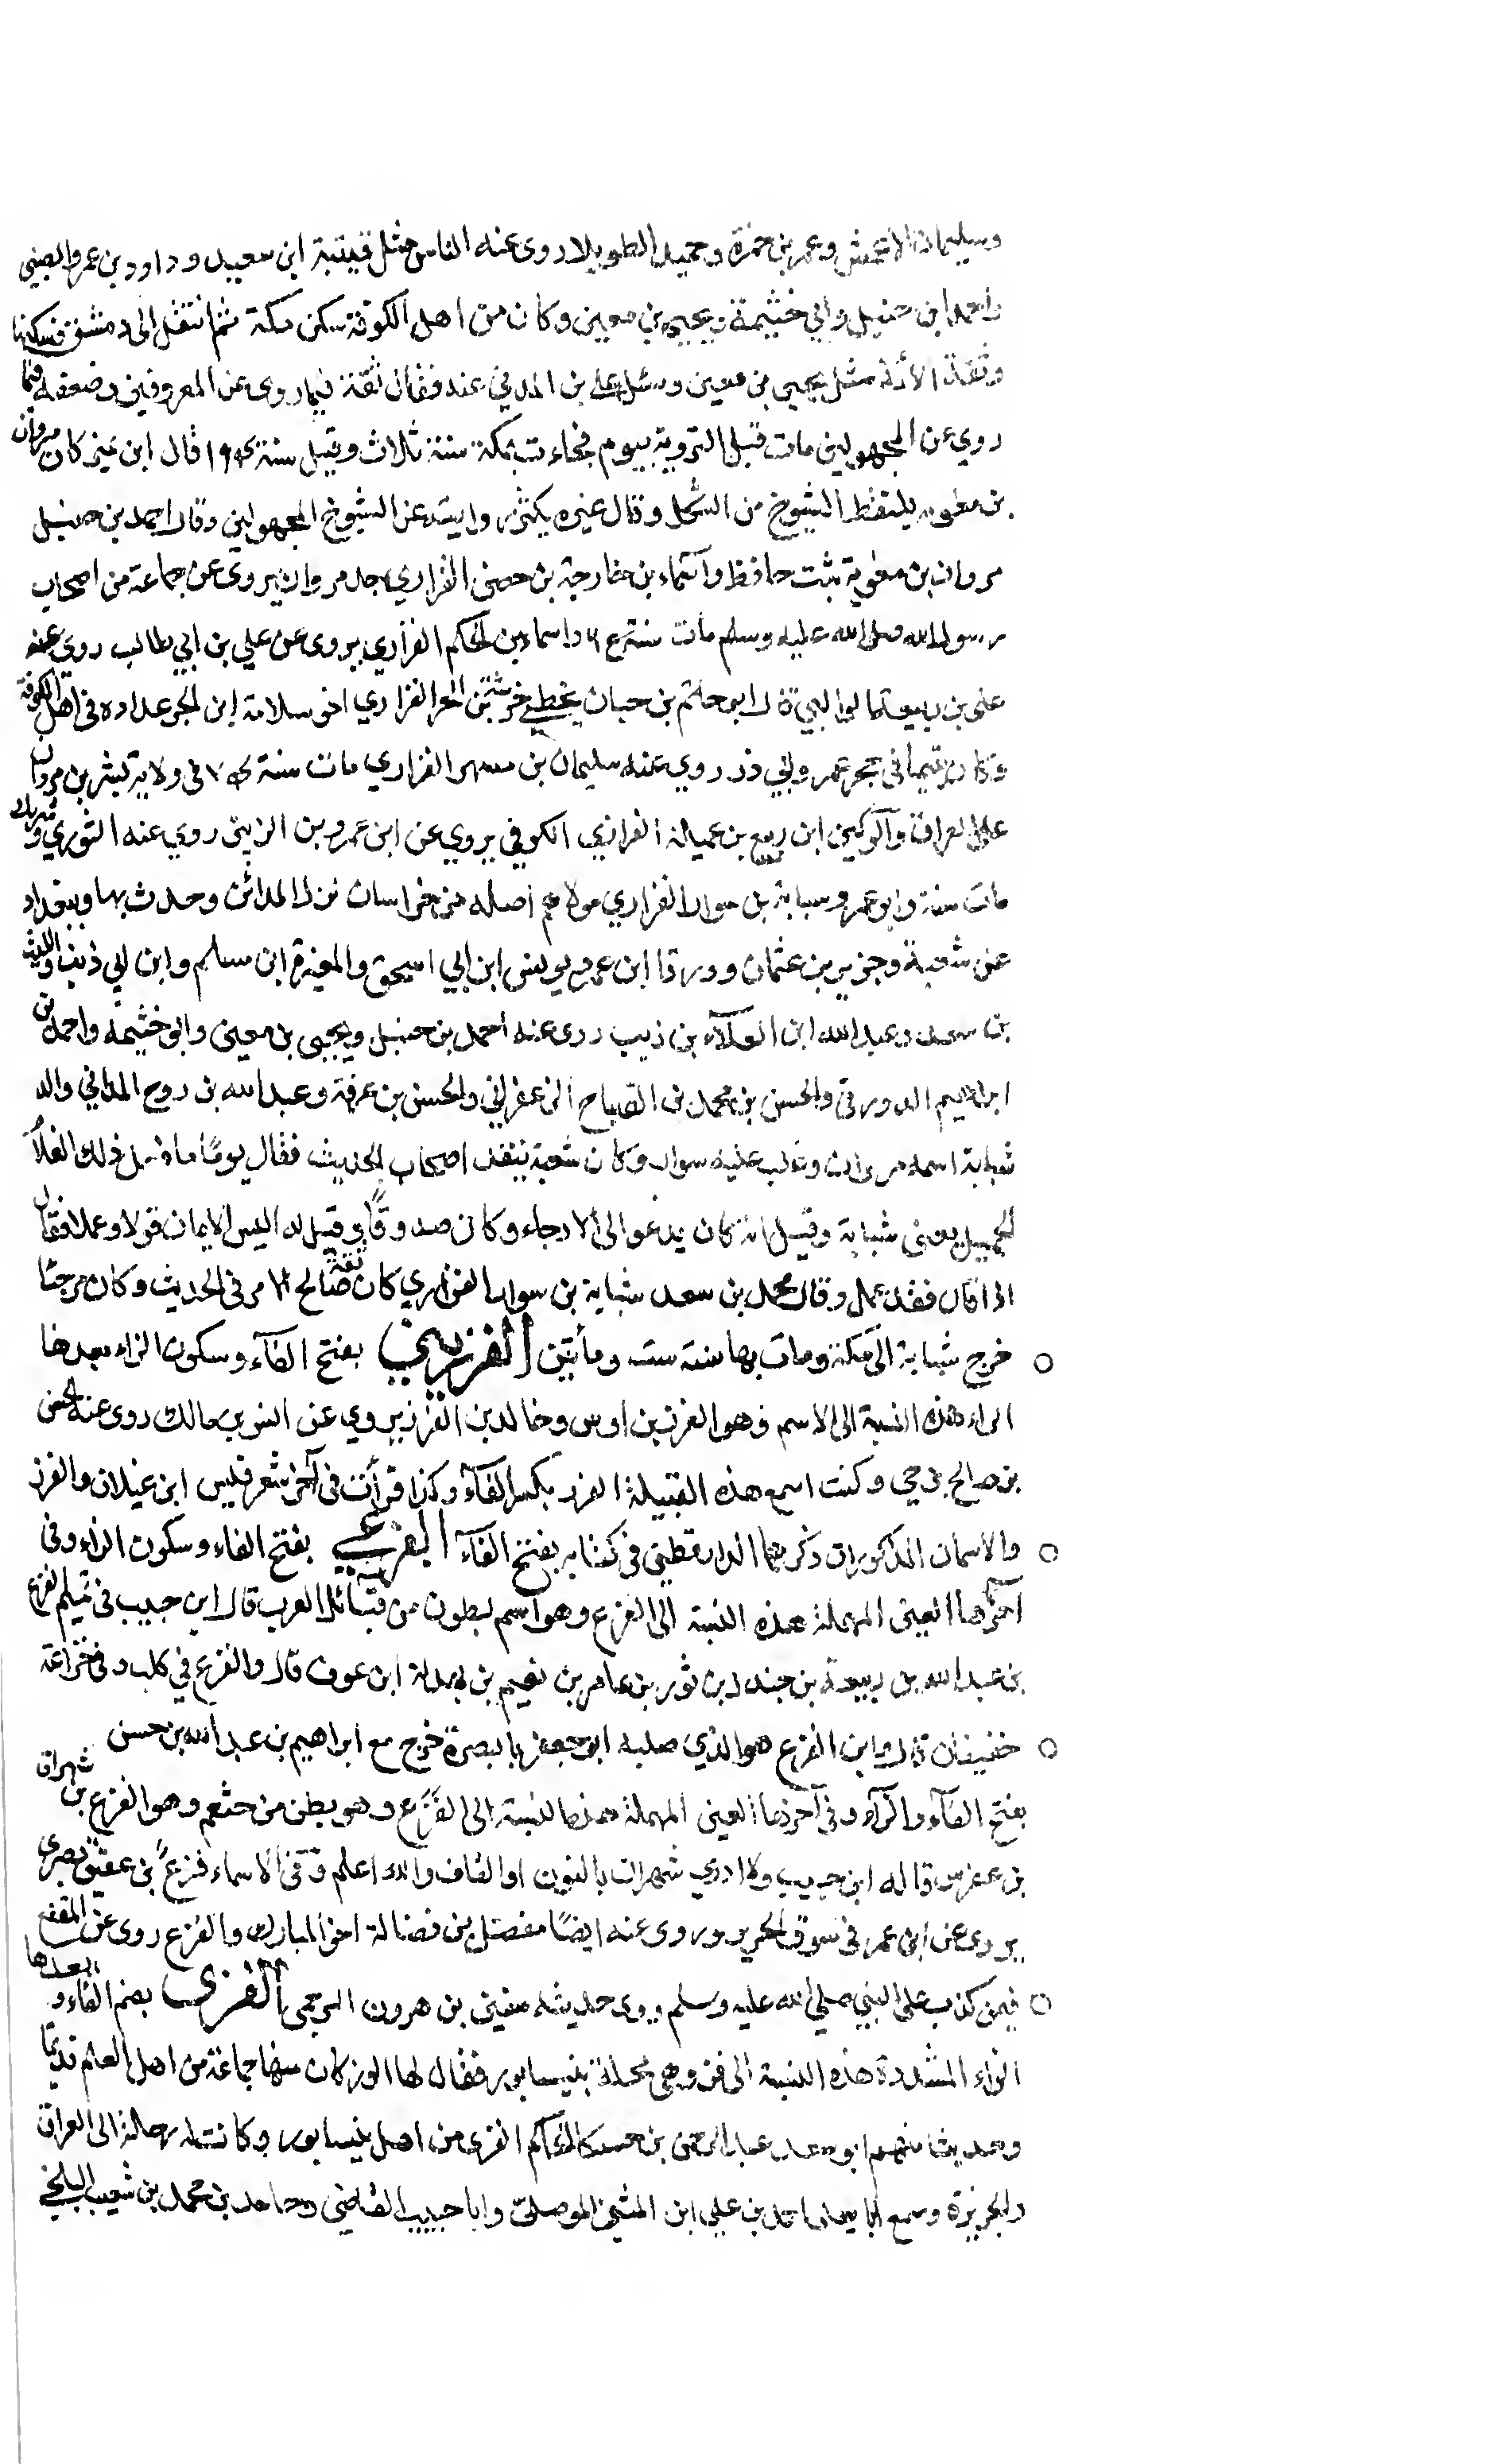 وسليمان الاعمش وعمر بن حمزة وحميد الطويل روى عنه الناس مثل قتيبة ابن سعيد وداود بن عمرو الضبي
واحمد ابن حنبل وابي خثيمة ويحيى بن معين وكان من اهل الكوفة سكن مكة ثم انتقل الى دمشق فسكنها
وثقة الأئمة مثل يحيى بن معين وسئل علي بن المديني عنه فقال ثقة فيما روى عن المعروفين وضعفه فيما
روي عن المجهولين مات قبل التروية بيوم فجاءة بمكة سنة ثلاث وقيل سنة قال ابن نمير كان مروان
بن معوية يلتقط الشيوخ من السكك وقال غيره يكثر روايته عن الشيوخ المجهولين وقال احمد بن حنبل
مروان بن معوية ثبت حافظ وأسماء بن خارجة بن حصن الفزاري جد مروان يروى عن جماعة من اصحاب
رسول الله صلى الله عليه وسلم مات سنة واسماء بن الحكم الفزاري يروى عن علي بن ابي طالب روى عنه
على بن ربيعة الوالبي قال ابو حاتم بن حبان يخطي خرشة بن الحر الفزاري اخو سلامة ابن الحر عداده في اهل الكوفة
وكان يتيما في حجر عمر وابي ذر روي عنه سليمان بن مسهر الفزاري مات سنة في ولاية بشر بن مروان
على العراق والركين ابن ربيع بن عميلة الفزاري الكوفي يروي عن ابن عمر وبن الزبير روي عنه الثوري وشريك
مات سنة وابو عمرو شبابة بن سوار الفزاري مولاهم اصله من خراسان نزل المدائن وحدث بها وببغداد
عن شعبة وجرير بن عثمان وورقا ابن عمر ويونس ابن ابي اسحق والمغيرة ابن مسلم وابن ابي ذئب والليث
بن سعد وعبد الله ابن العلاء بن زبر روى عنه احمد بن حنبل ويحيى بن معين وابو خثيمة واحمد بن
ابراهيم الدورقي والحسن بن محمد بن الصباح الزعفراني والحسن بن عرفة وعبد الله بن روح المدائني والد
شبابة اسمه مروان وغلب عليه سوار وكان شعبة يتفقد اصحاب الحديث فقال يومًا ما فعل ذلك الغلام
الجميل يعنى شبابة وقيل انه كان يدعو الى الارجاء وكان صدوقًا وقيل له اليس الايمان قولا وعملا فقال
اذا قال فقد عمل وقال محمد بن سعد شبابة بن سوار الفزاري كان ثقة صالح الامر في الحديث وكان مرجئا
خرج شبابة الى مكة ومات بها سنة ست ومأتين الفزري بفتح الفاء وسكون الزاء بعدها
الراء هذه النسبة الى الاسم وهو الفزر بن اوس وخالد بن الفزر يروي عن انس بن مالك روى عنه الحسن
بن صالح بن حي وكنت اسمع هذه القبيلة الفزر بكسر الفاء وكذا قرأت في آخر شعر قيس ابن غيلان والفزر
والاسمان المذكوران ذكرهما الدارقطني في كتابه بفتح الفاء الفزعي بفتح الفاء وسكون الزاء وفي
آخرها العين المهملة هذه النسبة الى الفزع وهو اسم لبطون من قبائل العرب قال ابن حبيب في تميم الفزع
بن عبد الله بن ربيعة بن جندل بن ثور بن عامر بن نعيم بن بهدلة ابن عوف قال والفزع في كلب وفي خزاعة
خفيفان قال وابن الفزع هو الذي صلبه ابو جعفر بالبصرة خرج مع ابراهيم بن عبد الله بن حسن
بفتح الفاء والزاء وفي آخرها العين المهملة هذه النسبة الى الفزع وهو بطن من خثعم وهو الفزع بن شهران
بن عفرس قاله ابن حبيب ولا ادري شهران بالنون او القاف والله اعلم وفى الاسماء فزع بن عقيق بصري
يروى عن ابن عمر في سوق الحرير وروى عنه ايضًا مفضل بن فضالة اخو المبارك والفزع روى عن المقنع
فيمن كذب على النبي صلي الله عليه وسلم روى حديثه سفين بن هرون البرجمى الفزى بضم الفاء وبعدها
الزاء المشددة هذه النسبة الى فز وهي محلة بنيسابور فقال لها الوز كان منها جماعة من اهل العلم قديما
وحديثا منهم ابو سعد عبد الرحمن بن الحاكم الفزى من اهل نيسابور وكانت له رحالة الى العراق
والجزيرة وسمع ابا يعلى احمد بن علي ابن المثنى الموصلي وابا حبيب القاضي وحامد بن محمد بن شعيب البلخي